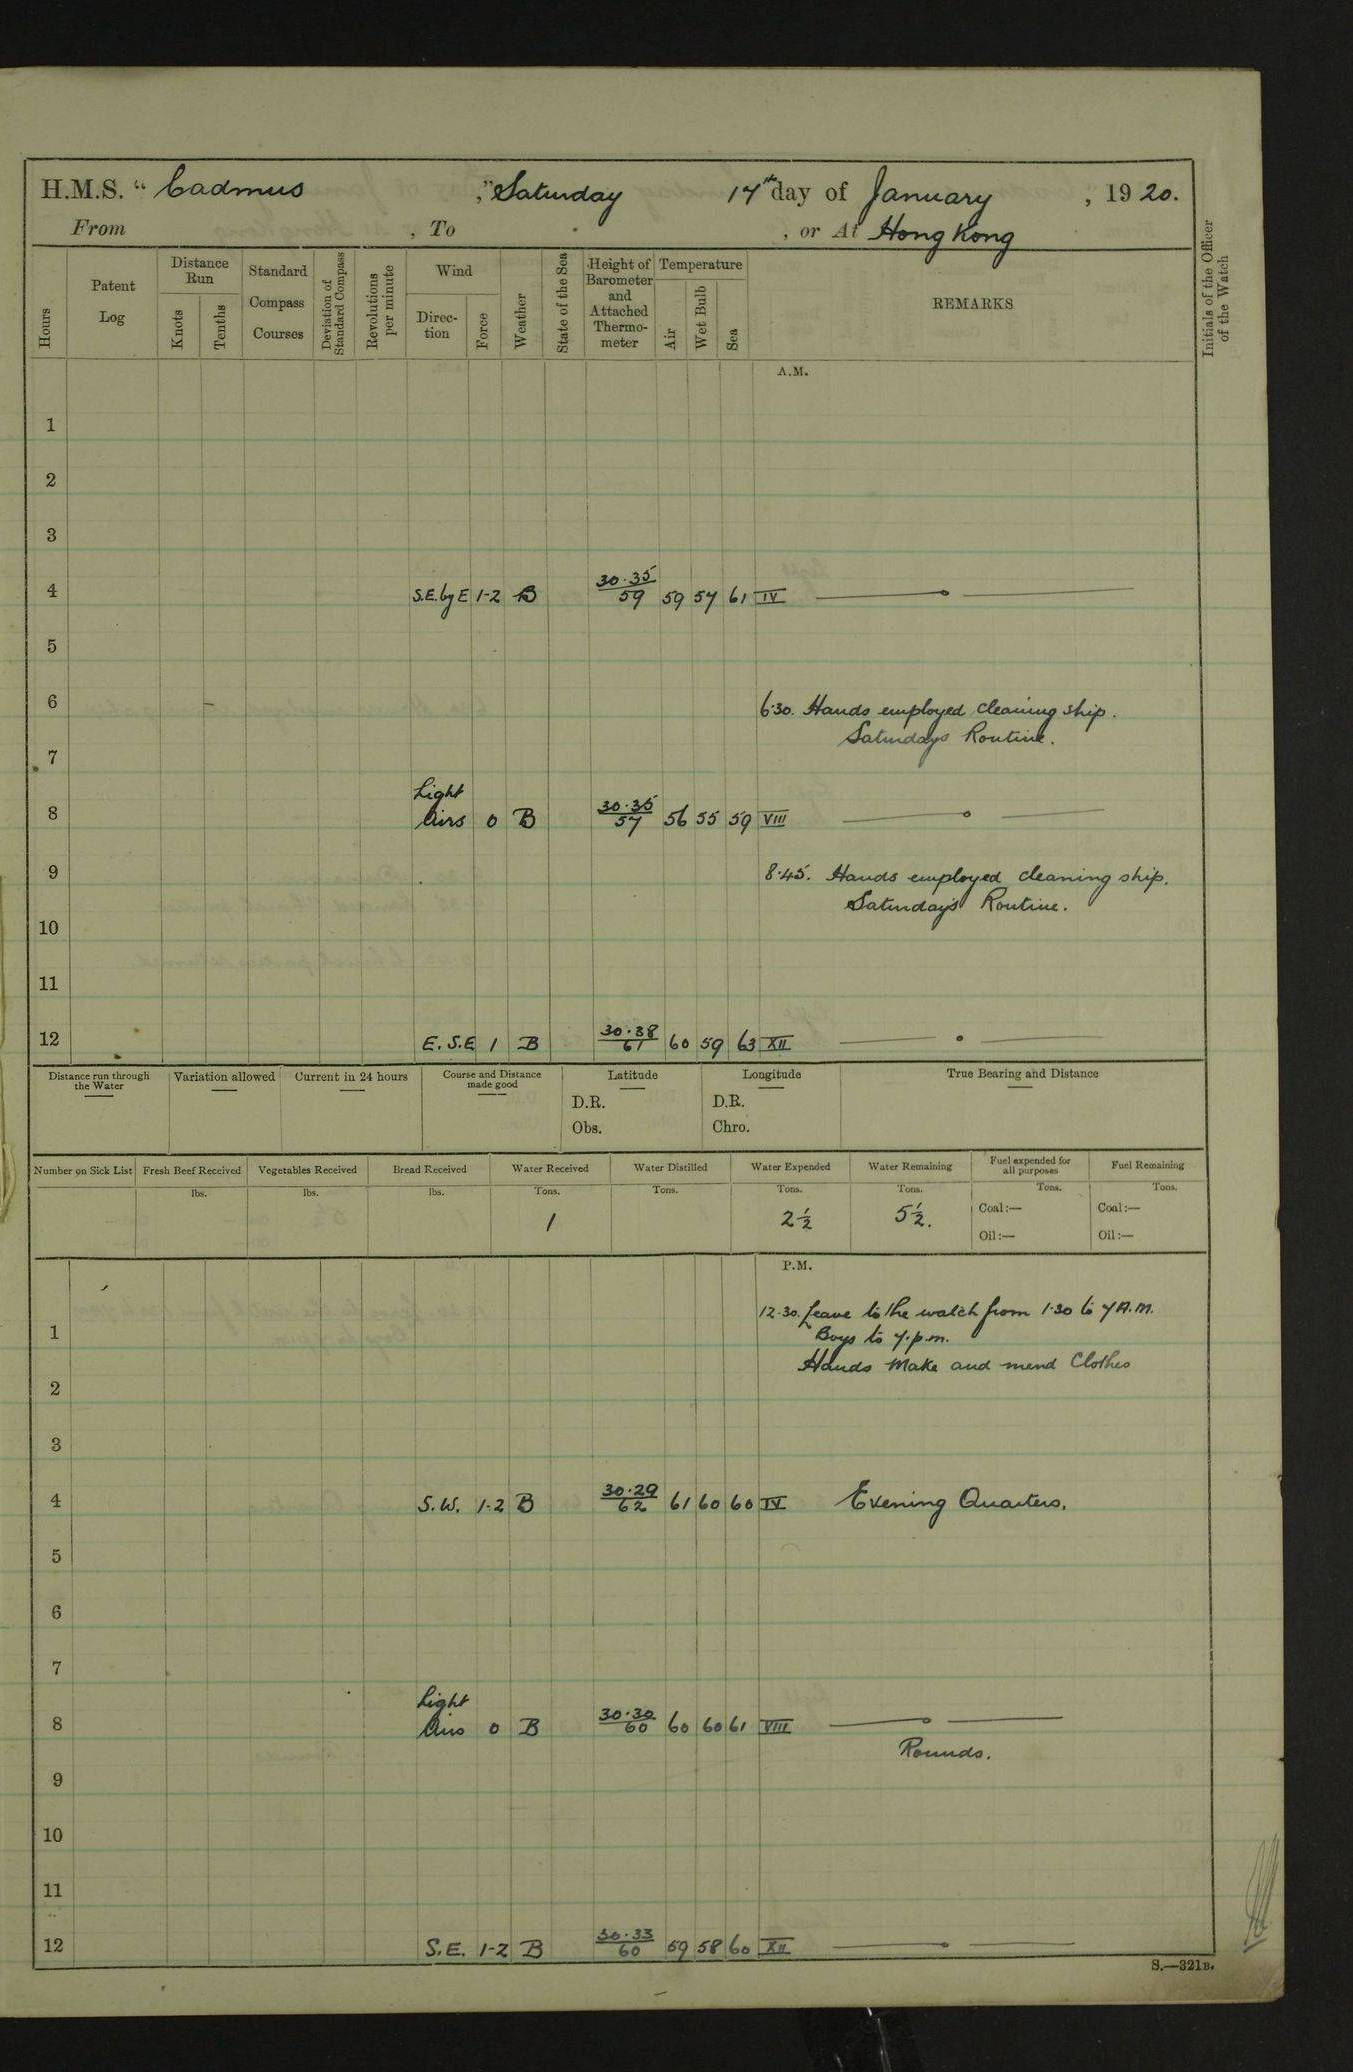 H.M.S. "Cadmus," Saturday 17th day of January, 1920.
From , To , or At Hong Kong
Hours
Patent Log
Distance Run
Knots
Tenths
Standard Compass Courses
Deviation of Standard Compass
Revolutions per minute
Wind
Direction
Force
Weather
State of the Sea
Height of Barometer and Attached Thermometer
Temperature
Air
Wet Bulb
Sea
REMARKS
Initials of the Officer of the Watch
A.M.
1
2
3
4 S.E. by E 1-2 B 30.35/59 59 57 61 IV
5
6 6.30. Hands employed cleaning ship.
Saturdays Routine.
7
Light
8 Airs 0 B 30.35/57 56 55 59 VIII
9 8.45. Hands employed cleaning ship.
Saturday's Routine.
10
11
12 E.S.E 1 B 30.38/61 60 59 63 XII
Distance run through the Water
Variation allowed
Current in 24 hours
Course and Distance made good
Latitude
D.R.
Obs.
Longitude
D.R.
Chro.
True Bearing and Distance
Number on Sick List
Fresh Beef Received
lbs.
Vegetables Received
lbs.
Bread Received
lbs.
Water Received
Tons.
1
Water Distilled
Tons.
Water Expended
Tons.
2 1/2
Water Remaining
Tons.
5 1/2.
Fuel expended for all purposes
Tons.
Coal:—
Oil:—
Fuel Remaining
Tons.
Coal:—
Oil:—
P.M.
12.30. Leave to the watch from 1.30 to 7 A.M.
1 Boys to 7.p.m.
Hands Make and mend Clothes
2
3
4 S.W. 1-2 B 30.29/62 61 60 60 IV Evening Quarters.
5
6
7
Light
8 Airs 0 B 30.30/60 60 60 61 VIII
Rounds.
9
10
11
12 S.E. 1-2 B 30.33/60 59 58 60 XII
S.—321B.